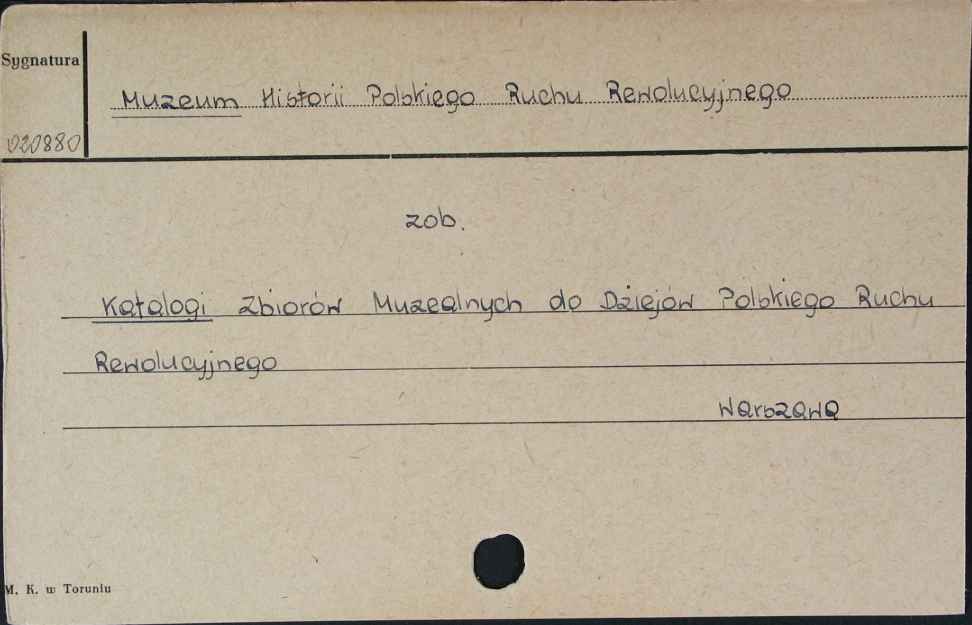 Sygnatura
Muzeum Historii Polskiego Ruchu Rewolucyjnego
020880
zob.
Katalogi Zbiorów Muzealnych do Dziejów Polskiego Ruchu
Rewolucyjnego
Warszawa
M. K. w Toruniu